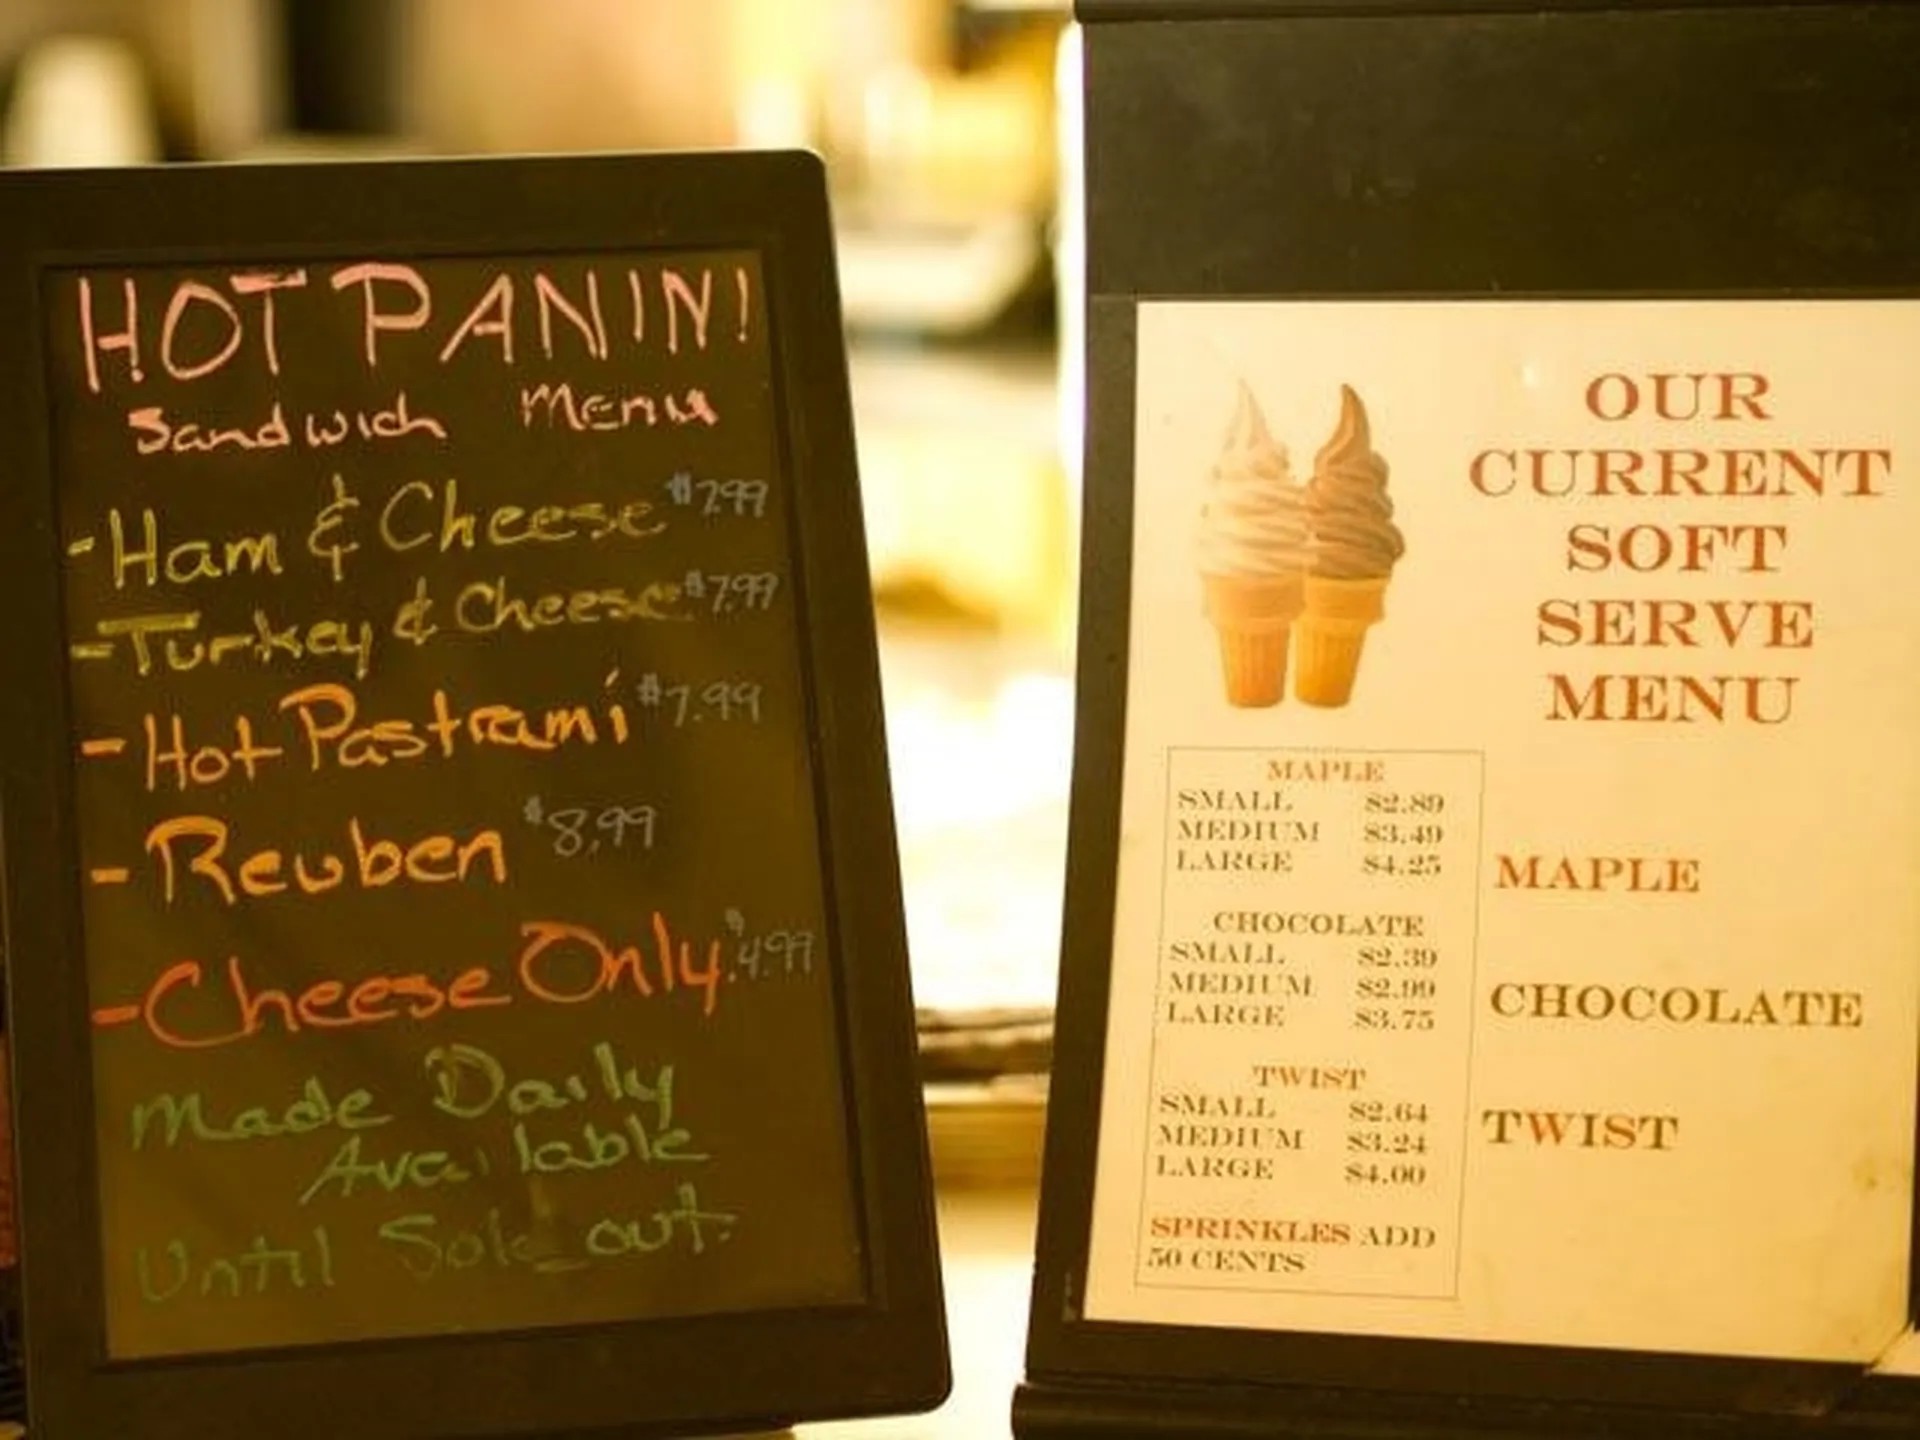 HOT PANINI
Sandwich Menu
- Ham & Cheese $7.99
- Turkey & Cheese $7.99
- Hot Pastrami $7.99
- Reuben $8.99
- Cheese Only $4.99
Made Daily
Available
Until Sold out.
OUR
CURRENT
SOFT
SERVE
MENU
MAPLE
SMALL $2.89
MEDIUM $3.49
LARGE $4.25
CHOCOLATE
SMALL $2.39
MEDIUM $2.99
LARGE $3.75
TWIST
SMALL $2.64
MEDIUM $3.24
LARGE $4.00
SPRINKLES ADD
50 CENTS
MAPLE
CHOCOLATE
TWIST